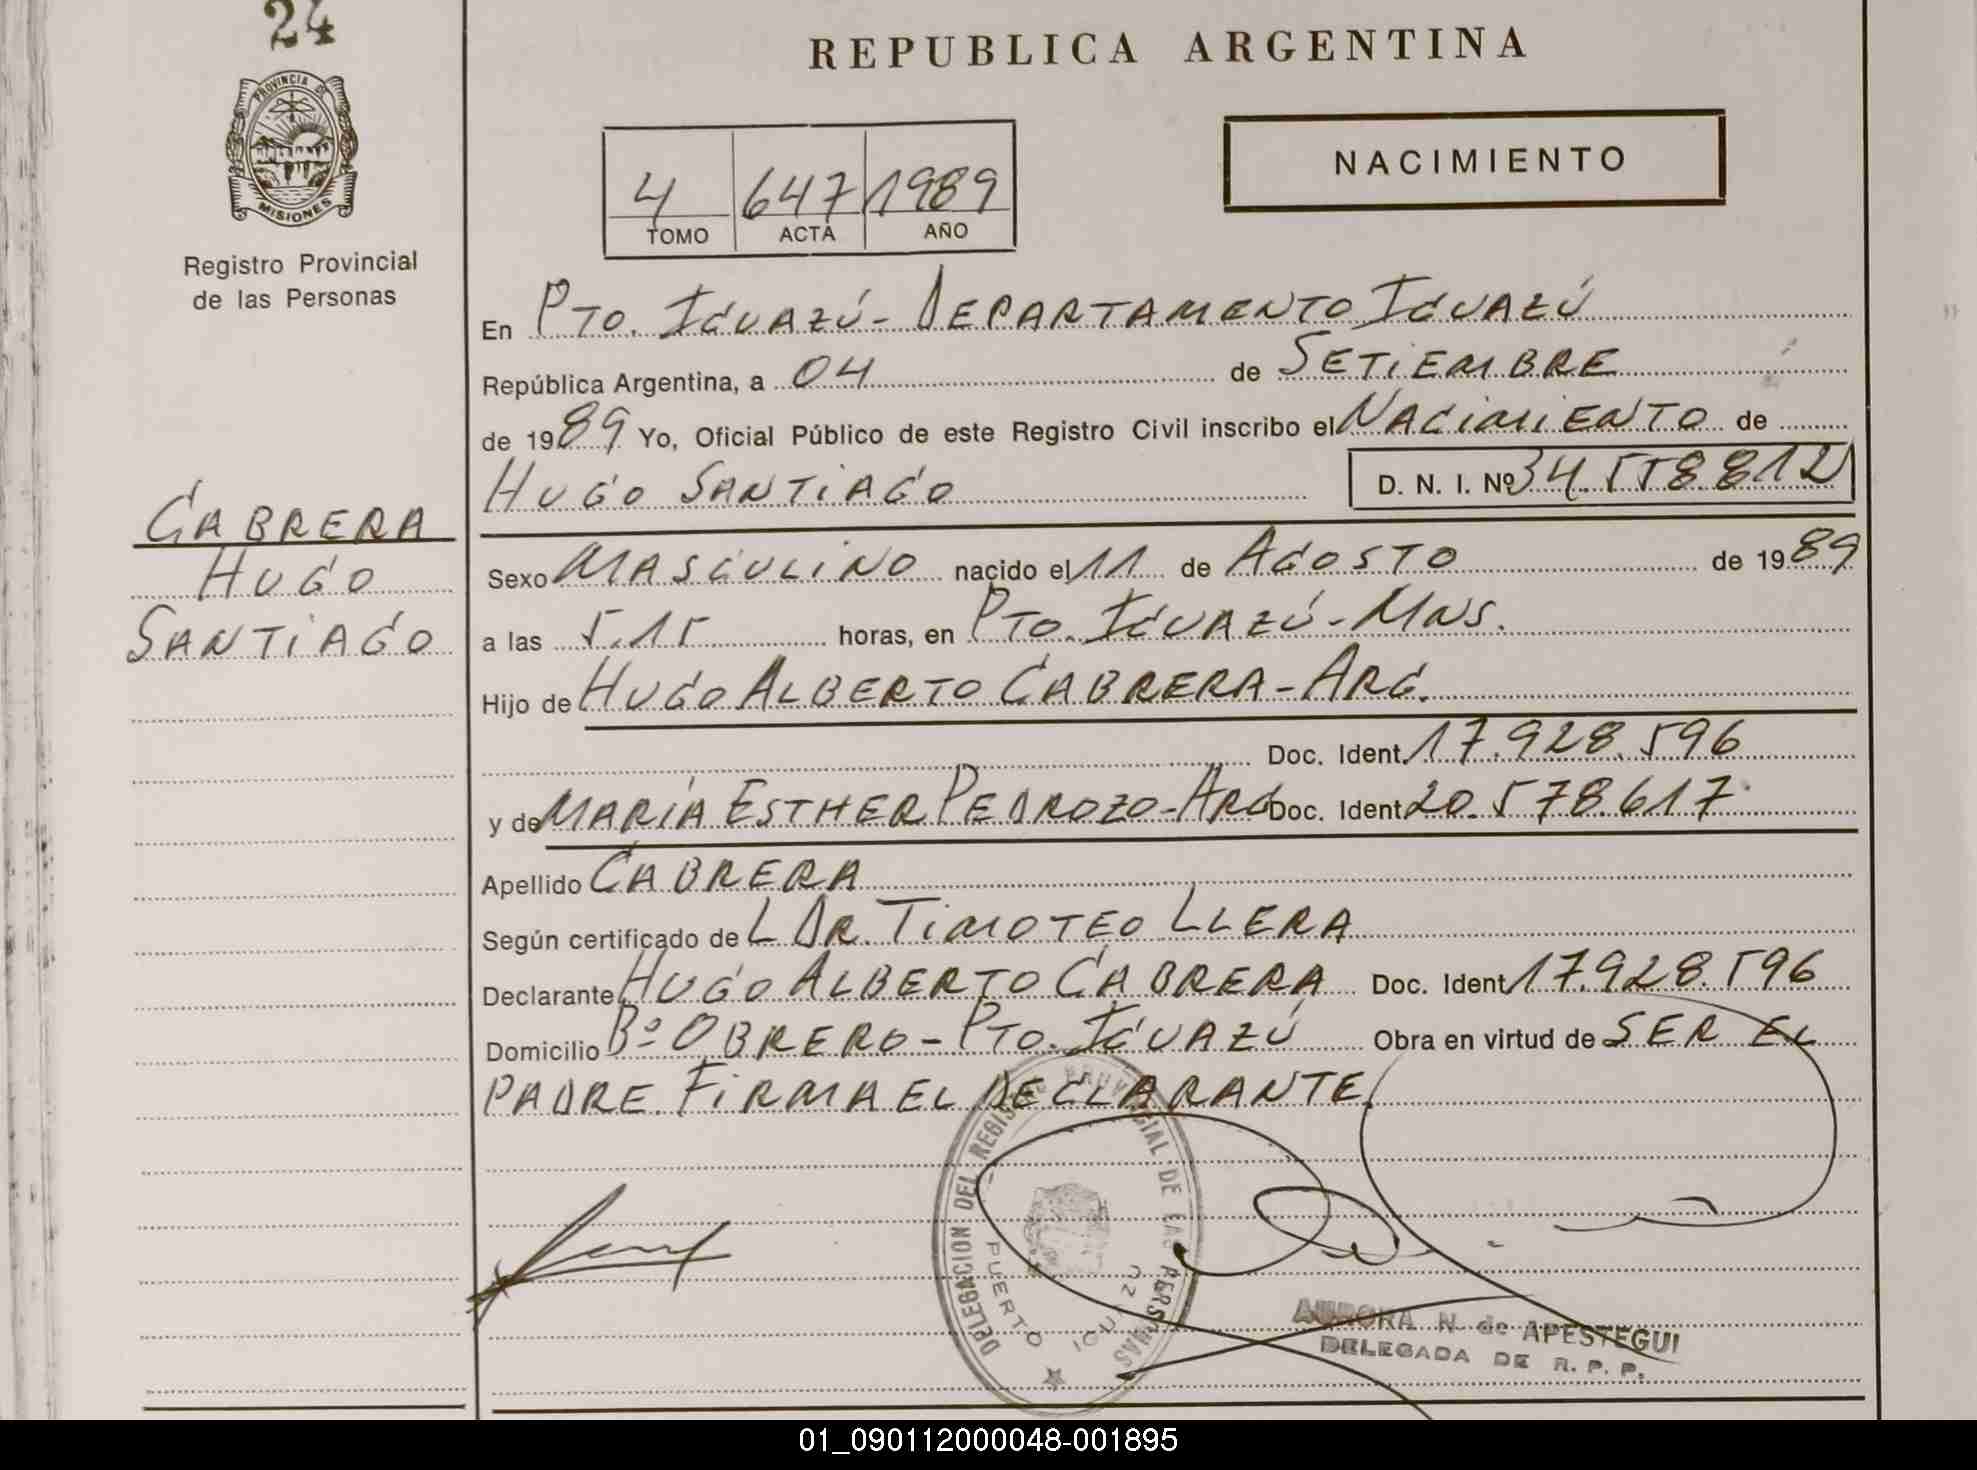 24
REPUBLICA ARGENTINA
PROVINCIA DE
MISIONES
Registro Provincial
de las Personas
4 647 1989
TOMO ACTA AÑO
NACIMIENTO
En PTO. IGUAZÚ - DEPARTAMENTO IGUAZÚ
República Argentina, a 04 de SETIEMBRE
de 1989 Yo, Oficial Público de este Registro Civil inscribo el NACIMIENTO de
HUGO SANTIAGO D. N. I. Nº 34.558.812
CABRERA
HUGO
SANTIAGO
Sexo MASCULINO nacido el 11 de AGOSTO de 1989
a las 5.15 horas, en PTO. IGUAZÚ - MNS.
Hijo de HUGO ALBERTO CABRERA - ARG.
Doc. Ident. 17.928.596
y de MARÍA ESTHER PEDROZO - ARG Doc. Ident. 20.578.617
Apellido CABRERA
Según certificado de L DR. TIMOTEO LLERA
Declarante HUGO ALBERTO CABRERA Doc. Ident. 17.928.596
Domicilio Bº OBRERO - PTO. IGUAZÚ Obra en virtud de SER EL
PADRE. FIRMA EL DECLARANTE.
DELEGACION DEL REGISTRO PROVINCIAL DE LAS PERSONAS
PUERTO IGUAZU
AURORA N. de APESTEGUI
DELEGADA DE R. P. P.
01_090112000048-001895